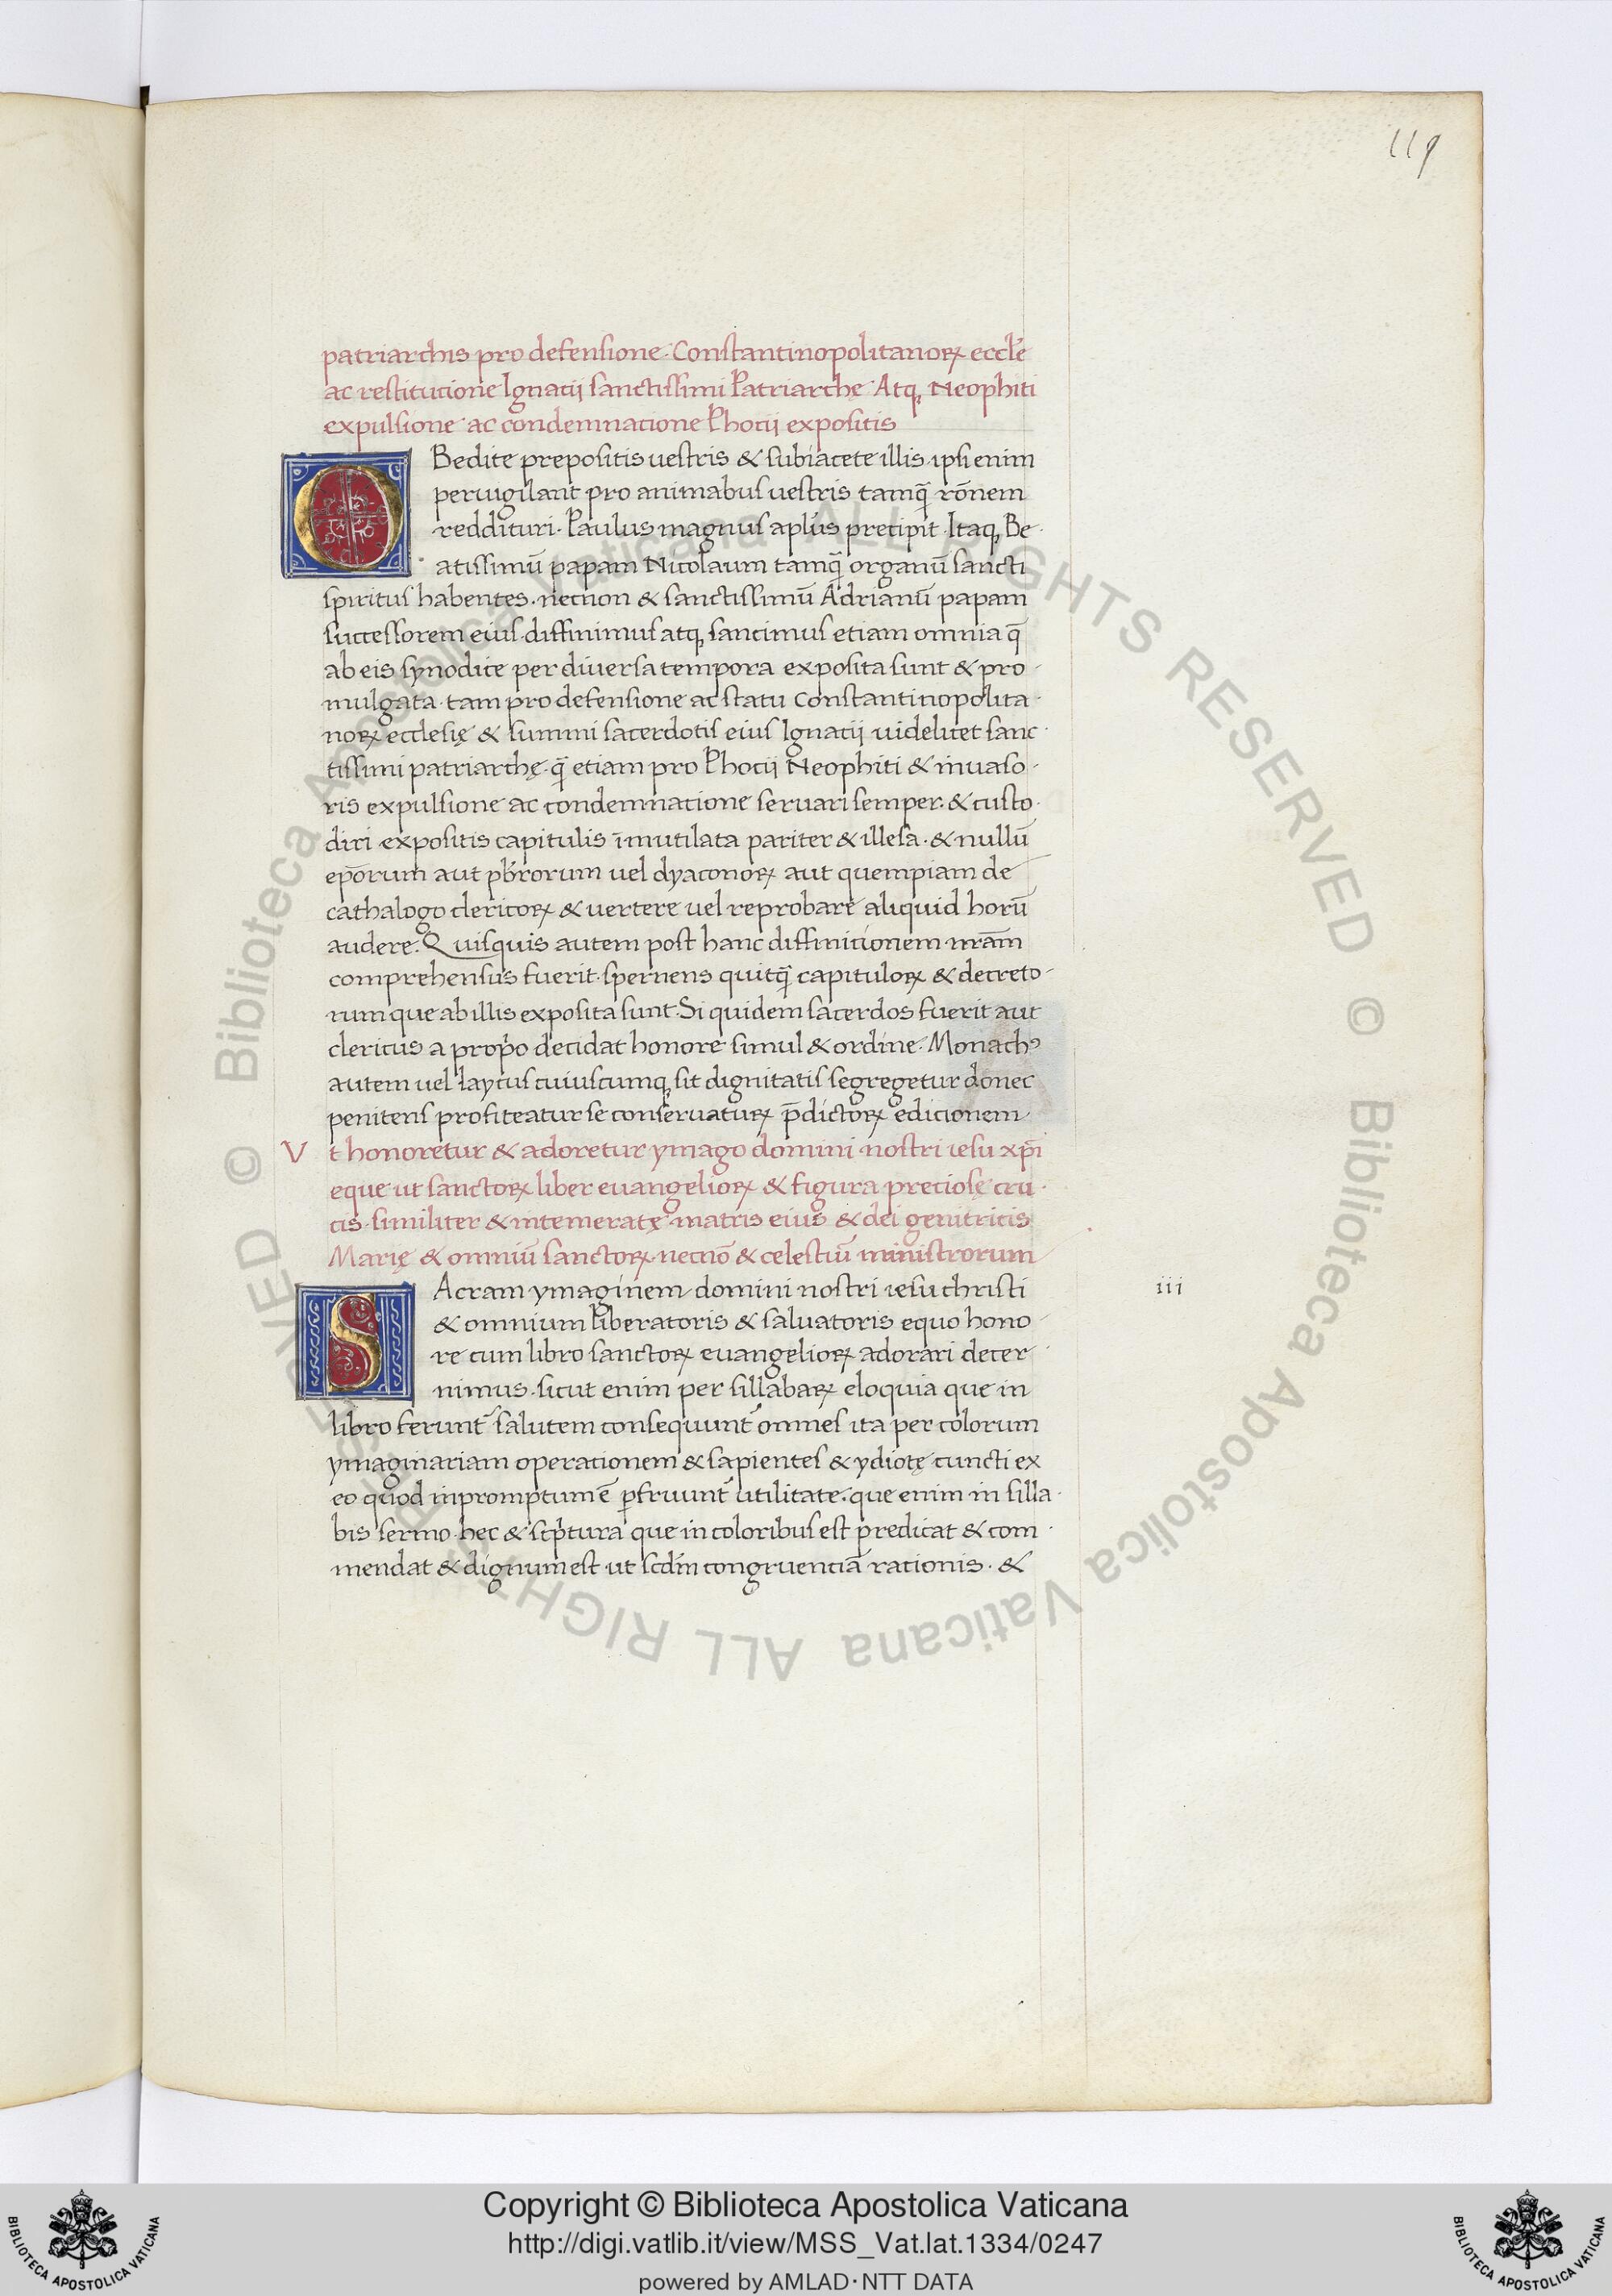 119
patriarchis pro defensione Constantinopolitanoꝝ eccl̄e
ac restitucione Ignacij sanctissimi Patriarchę Atqꝫ Neophiti
expulsione ac condemnacione Photij expositis
OBedite prepositis uestris & subiacete illis ipsi enim
peruigilant pro animabus uestris tamq̄ rōnem
reddituri. Paulus magnus apl̄us precipit Itaqꝫ Be-
atissimū papam Nicolaum tamq̄ organū sancti
spiritus habentes. necnon & sanctissimū Adrianū papam
successorem eius diffinimus atqꝫ sancimus etiam omnia q̄
ab eis synodice per diuersa tempora exposita sunt & pro-
mulgata tam pro defensione ac statu Constantinopolita-
noꝝ ecclesię & summi sacerdotis eius Ignacij uidelicet sanc-
tissimi patriarchę q̄ etiam pro Photij Neophiti & inuaso-
ris expulsione ac condemnacione seruari semper. & custo-
diri expositis capitulis īmutilata pariter & illesa. & nullū
ep̄orum aut pb̄rorum uel dyaconoꝝ aut quempiam de
cathalogo clericoꝝ & uertere uel reprobare aliquid horū
audere. Quisquis autem post hanc diffinitionem nr̄am
comprehensus fuerit spernens quitq̄ capituloꝝ & decreto-
rum que ab illis exposita sunt. Si quidem sacerdos fuerit aut
clericus a prop̄o decidat honore simul & ordine. Monachꝯ
autem uel laycus cuiuscumqꝫ sit dignitatis segregetur donec
penitens profiteatur se conseruaturꝝ p̄dictoꝝ edicionem
Vt honoretur & adoretur ymago domini nostri iesu xp̄i
eque ut sanctoꝝ liber euangelioꝝ & figura preciosę cru-
cis similiter & intemeratę matris eius & dei genitricis
Marię & omniū sanctoꝝ necnō & celestiū ministrorum
SAcram ymaginem domini nostri iesu christi
& omnium liberatoris & saluatoris equo hono-
re cum libro sanctoꝝ euangelioꝝ adorari decer-
nimus. sicut enim per sillabaꝝ eloquia que in
libro ferunt᷑ salutem consequunt᷑ omnes ita per colorum
ymaginariam operationem & sapientes & ydiotę cuncti ex
eo quod inpromptum ē ꝑfruunt᷑ utilitate. que enim in silla-
bis sermo hec & scp̄tura que in coloribus est predicat & com-
mendat & dignum est ut scdm̄ congruenciā rationis. &
iii
© Biblioteca Apostolica Vaticana ALL RIGHTS RESERVED © Biblioteca Apostolica Vaticana ALL RIGHTS RESERVED
Copyright © Biblioteca Apostolica Vaticana
http://digi.vatlib.it/view/MSS_Vat.lat.1334/0247
powered by AMLAD·NTT DATA
BIBLIOTECA APOSTOLICA VATICANA
BIBLIOTECA APOSTOLICA VATICANA